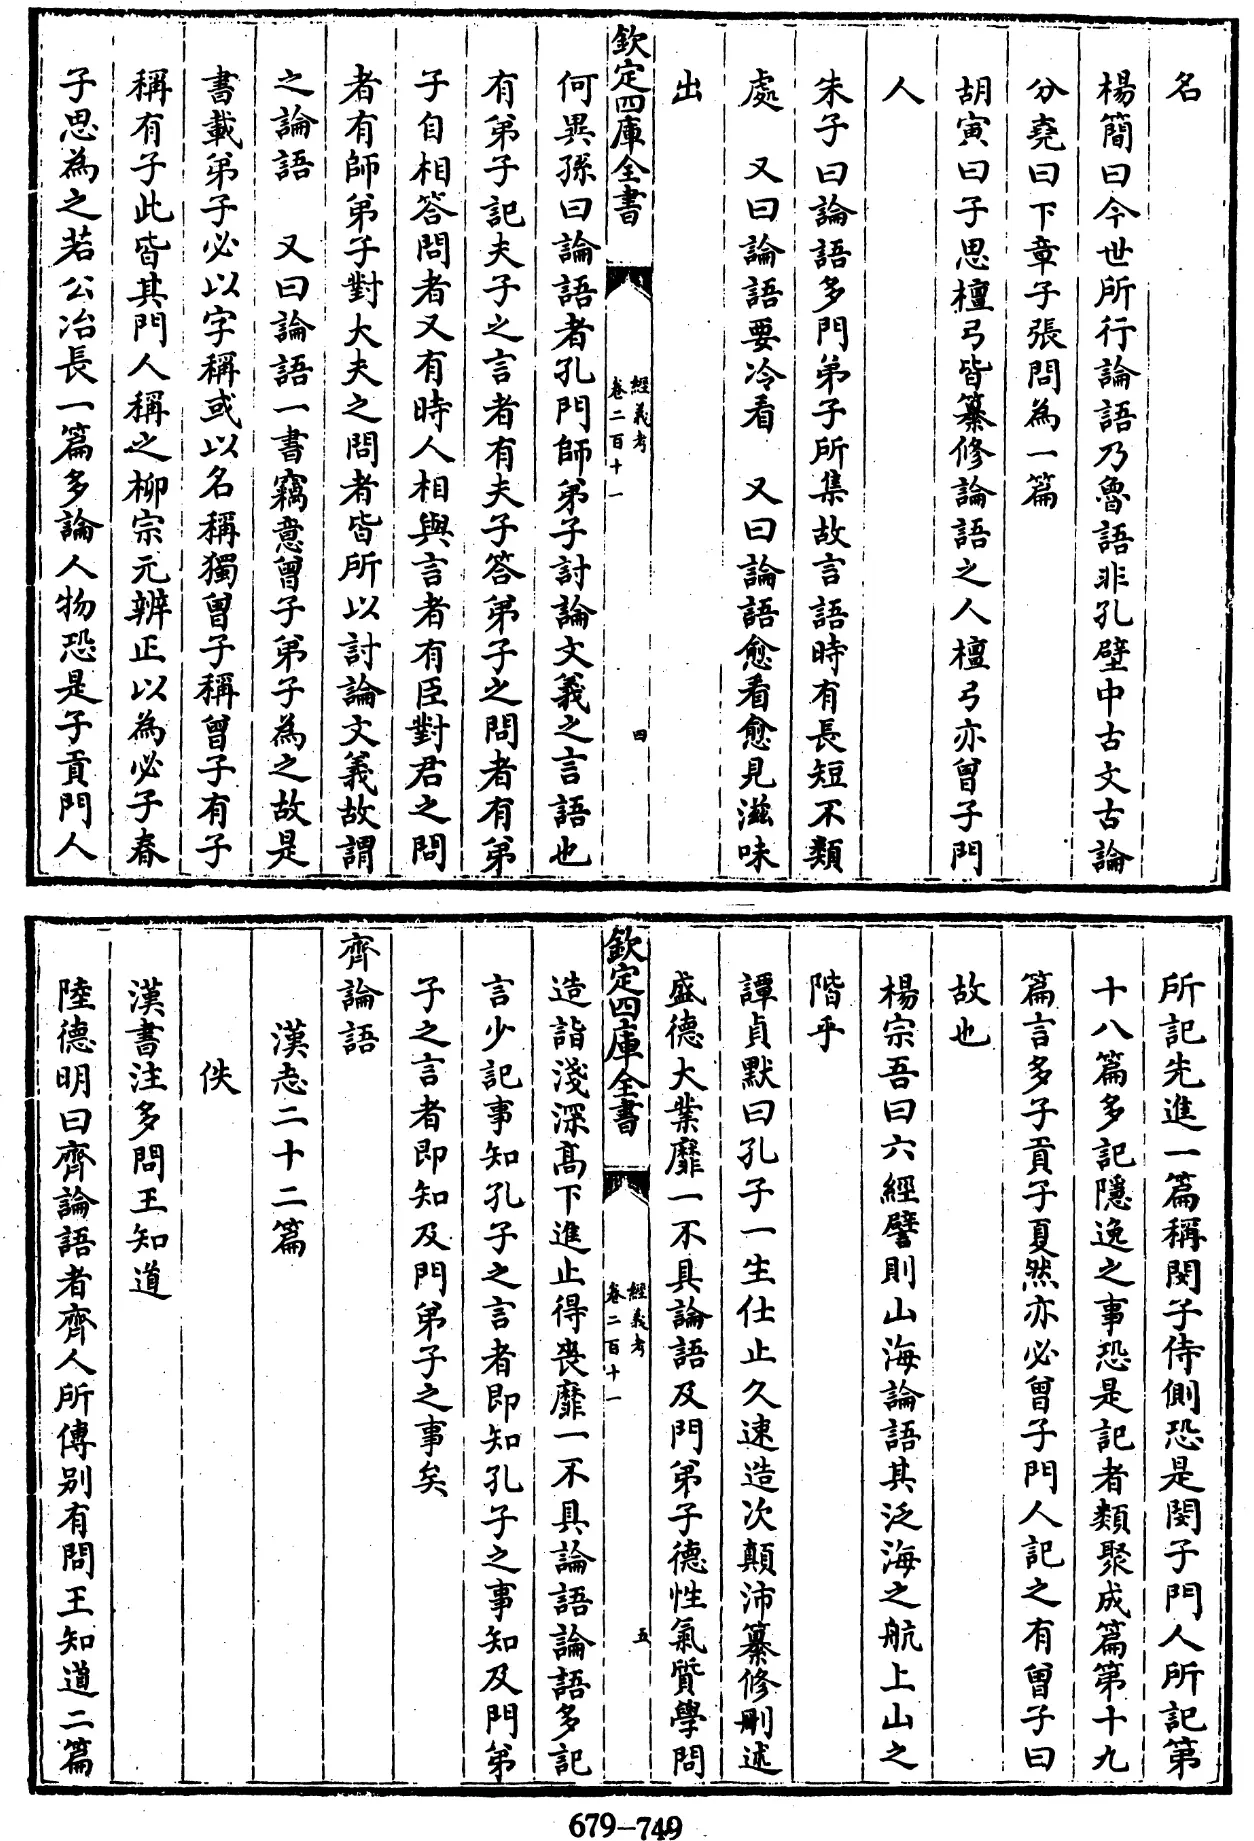 名
楊簡曰今世所行論語乃魯語非孔壁中古文古論
分堯曰下章子張問為一篇
胡寅曰子思檀弓皆纂修論語之人檀弓亦曾子門
人
朱子曰論語多門弟子所集故言語時有長短不類
處　又曰論語要冷看　又曰論語愈看愈見滋味
出
欽定四庫全書
經義考
卷二百十一
四
何異孫曰論語者孔門師弟子討論文義之言語也
有弟子記夫子之言者有夫子答弟子之問者有弟
子自相答問者又有時人相與言者有臣對君之問
者有師弟子對大夫之問者皆所以討論文義故謂
之論語　又曰論語一書竊意曾子弟子為之故是
書載弟子必以字稱或以名稱獨曾子稱曾子有子
稱有子此皆其門人稱之柳宗元辨正以為必子春
子思為之若公冶長一篇多論人物恐是子貢門人
所記先進一篇稱閔子侍側恐是閔子門人所記第
十八篇多記隱逸之事恐是記者類聚成篇第十九
篇言多子貢子夏然亦必曾子門人記之有曾子曰
故也
楊宗吾曰六經譬則山海論語其泛海之航上山之
階乎
譚貞默曰孔子一生仕止久速造次顛沛纂修刪述
盛德大業靡一不具論語及門弟子德性氣質學問
欽定四庫全書
經義考
卷二百十一
五
造詣淺深高下進止得喪靡一不具論語論語多記
言少記事知孔子之言者即知孔子之事知及門弟
子之言者即知及門弟子之事矣
齊論語
漢志二十二篇
佚
漢書注多問王知道
陸德明曰齊論語者齊人所傳别有問王知道二篇
679-749